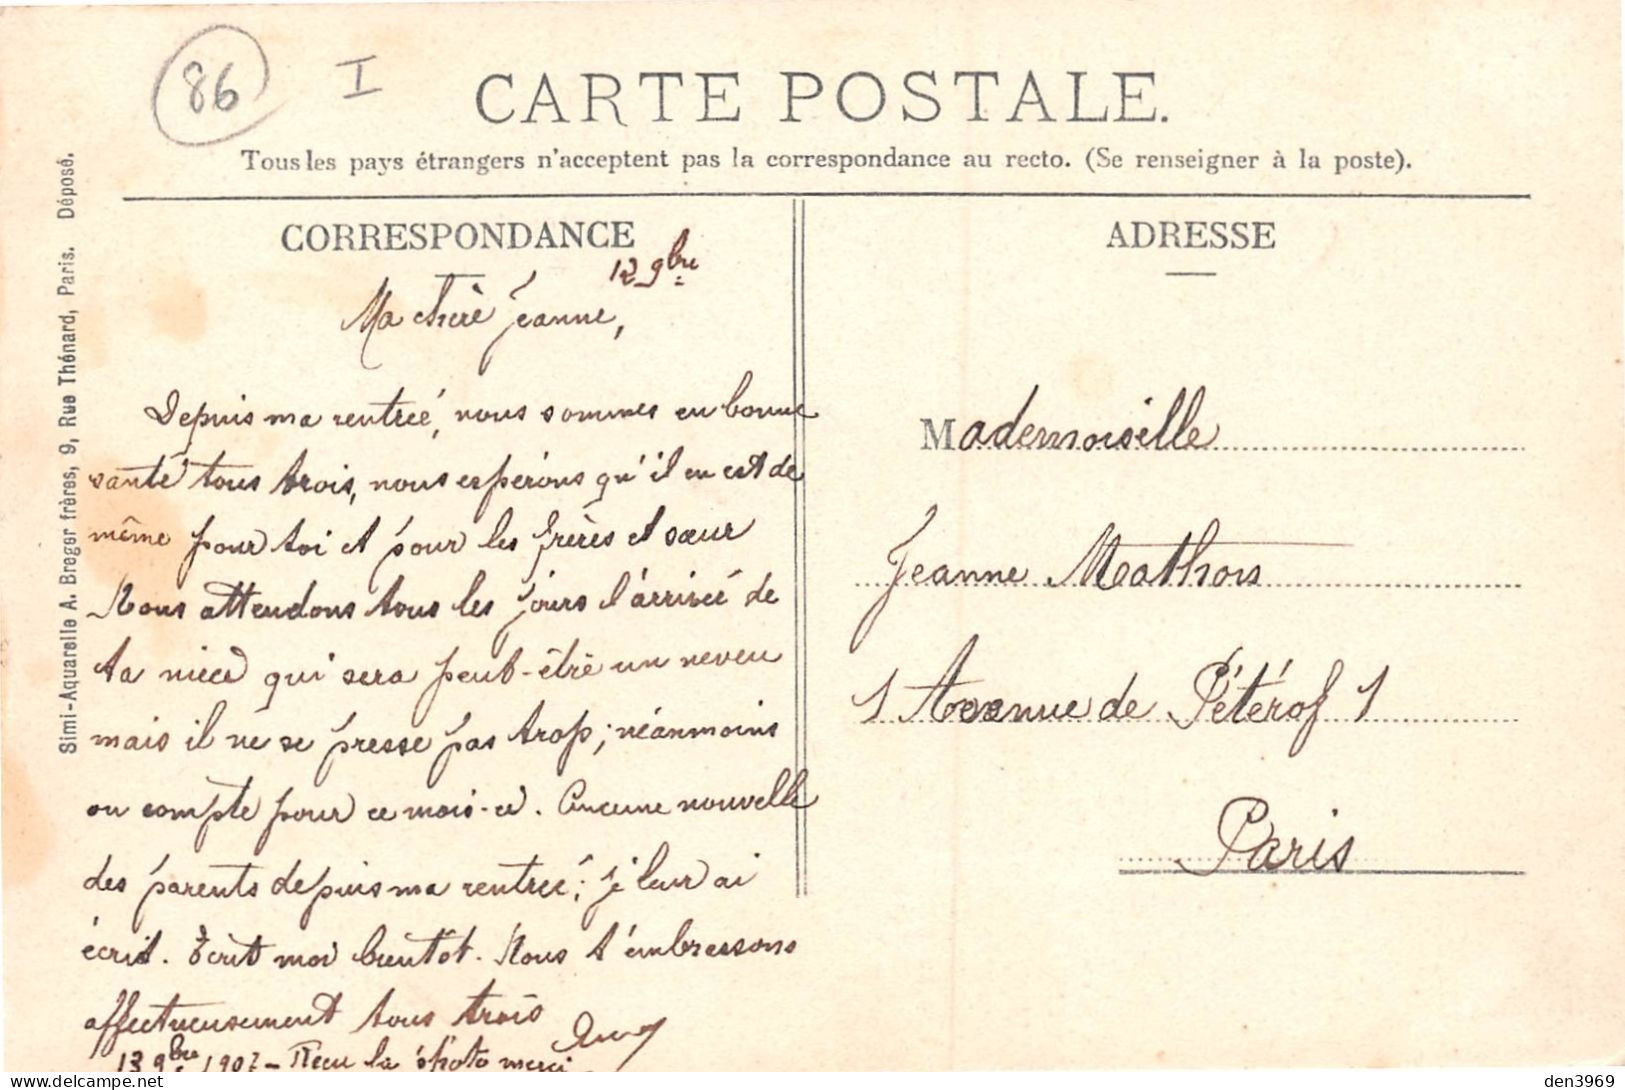 86
I
CARTE POSTALE.
Tous les pays étrangers n'acceptent pas la correspondance au recto. (Se renseigner à la poste).
Simi-Aquarelle A. Breger frères, 9, Rue Thénard, Paris. Déposé.
CORRESPONDANCE
12 9bre
Ma chère Jeanne,
Depuis ma rentrée, nous sommes en bonne
santé tous trois, nous espérons qu'il en est de
même pour toi et pour les frères et sœur
Nous attendons tous les jours l'arrivée de
ta nièce qui sera peut-être un neveu
mais il ne se presse pas trop; néanmoins
on compte pour ce mois-ci. Aucune nouvelle
des parents depuis ma rentrée; je leur ai
écrit. Écrit moi bientôt. Nous t'embrassons
affectueusement tous trois
13 9bre 1907 - Reçu la photo merci
ADRESSE
Mademoiselle
Jeanne Mathois
1 Avenue de Pétérof 1
Paris
den3969